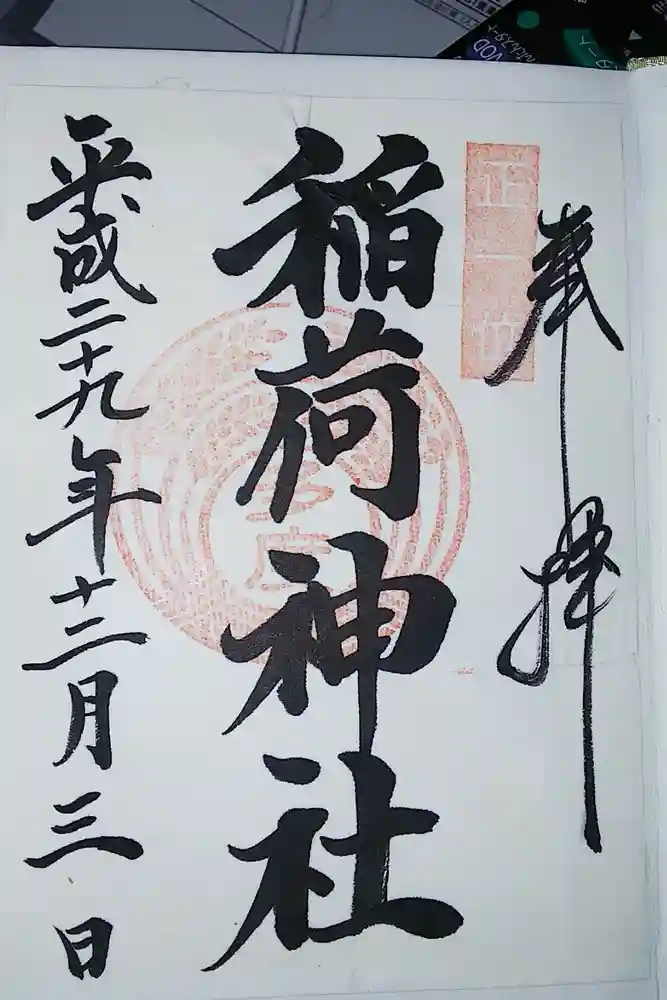 奉拝
正一位
稲荷神社
平成二十九年十二月三日
VOD